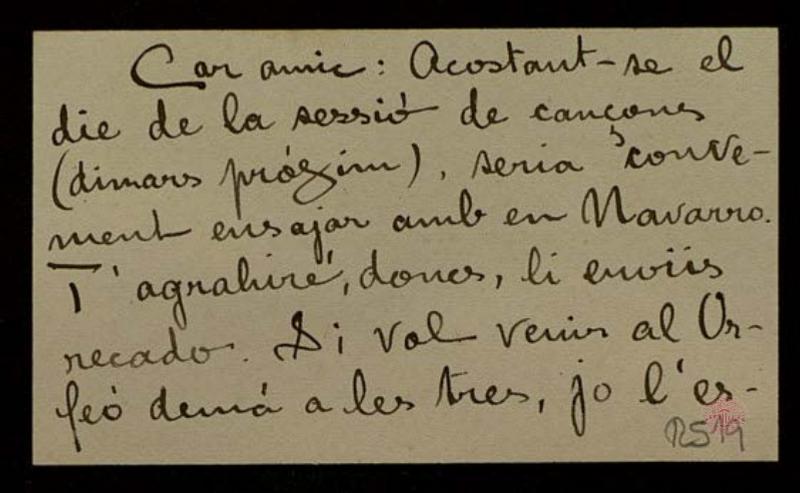 Car amic: Acostant-se el
die de la sessió de cançons
(dimars próxim), seria conve-
ment ensajar amb en Navarro.
T'agrahiré, doncs, li enviis
recado. Si vol venir al Or-
feó demá a les tres, jo l'es-
R519